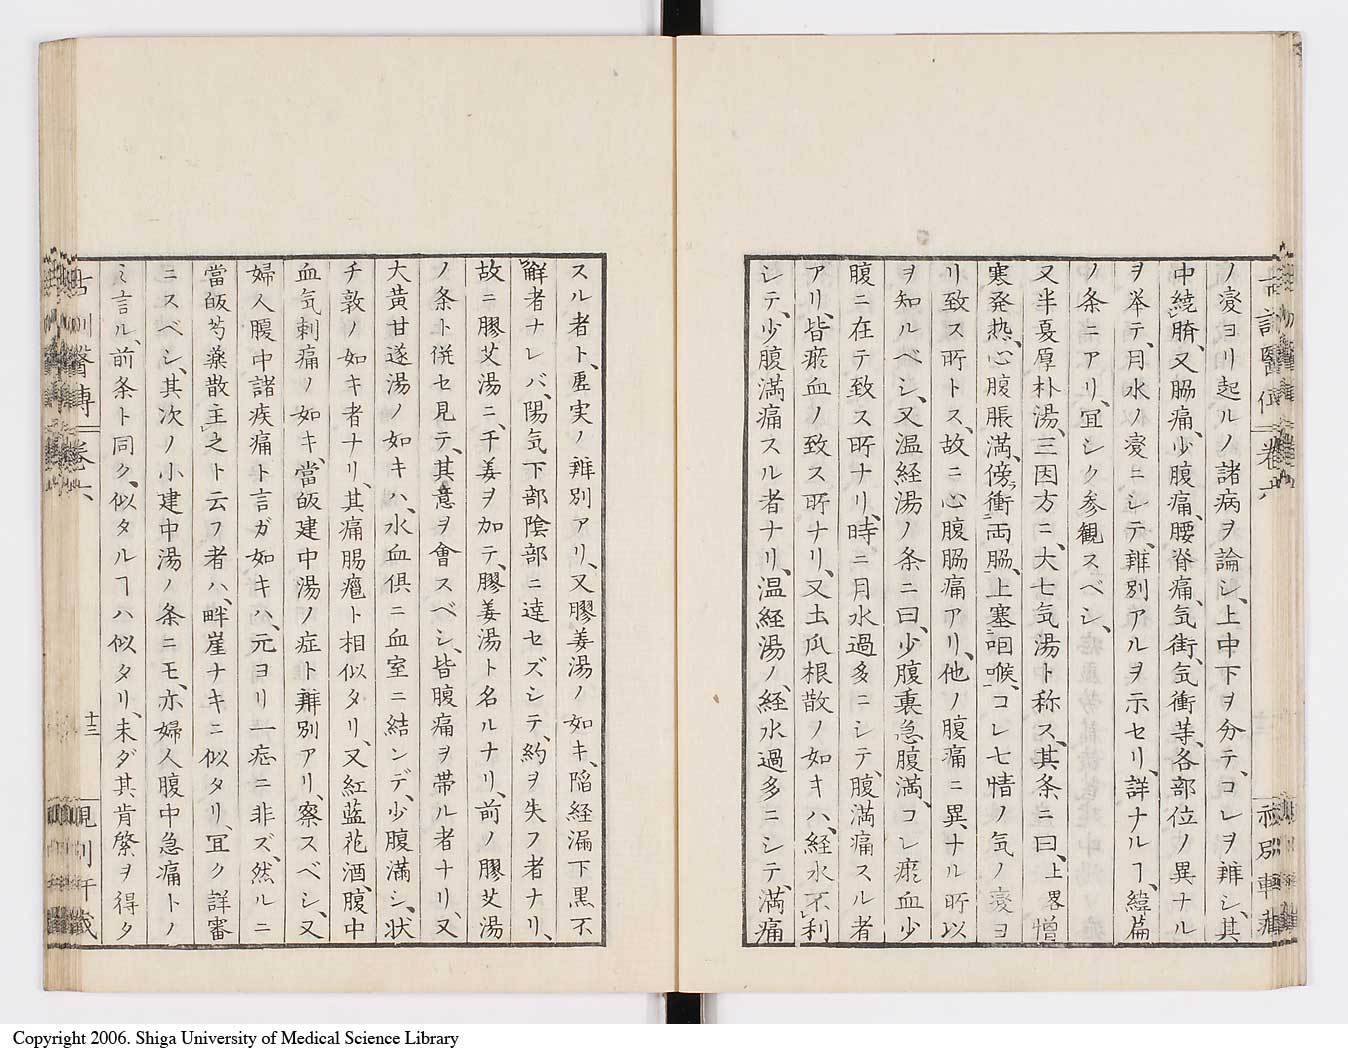 ノ変ヨリ起ルノ諸病ヲ論シ、上中下ヲ分テ、コレヲ辨シ、其
中繞臍、又脇痛、少腹痛、腰脊痛、気街、気衝等、各部位ノ異ナル
ヲ挙テ、月水ノ変ニシテ、辨別アルヲ示セリ、詳ナルヿ、緯篇
ノ条ニアリ、冝シク参観スベシ、
又半夏厚朴湯、三因方ニ、大七気湯ト称ス、其条ニ曰、上畧憎
寒発熱、心腹脹満、傍衝両脇、上塞咽喉、コレ七情ノ気ノ変ヨ
リ致ス所トス、故ニ心腹脇痛アリ、他ノ腹痛ニ異ナル所以
ヲ知ルベシ、又温経湯ノ条ニ曰、少腹裏急腹満、コレ瘀血少
腹ニ在テ致ス所ナリ、時ニ月水過多ニシテ、腹満痛スル者
アリ、皆瘀血ノ致ス所ナリ、又土瓜根散ノ如キハ、経水不利
シテ、少腹満痛スル者ナリ、温経湯ノ、経水過多ニシテ、満痛
スル者ト、虚実ノ辨別アリ、又膠姜湯ノ如キ、陥経漏下黒不
解者ナレバ、陽気下部陰部ニ達セズシテ、約ヲ失フ者ナリ、
故ニ膠艾湯ニ、干姜ヲ加テ、膠姜湯ト名ルナリ、前ノ膠艾湯
ノ条ト併セ見テ、其意ヲ會スベシ、皆腹痛ヲ帯ル者ナリ、又
大黄甘遂湯ノ如キハ、水血倶ニ血室ニ結ンデ、少腹満シ、状
チ敦ノ如キ者ナリ、其痛腸癰ト相似タリ、又紅藍花酒、腹中
血気刺痛ノ如キ、當皈建中湯ノ症ト辨別アリ、察スベシ、又
婦人腹中諸疾痛ト言ガ如キハ、元ヨリ一症ニ非ズ、然ルニ
當皈芍薬散主之ト云フ者ハ、畔崖ナキニ似タリ、冝ク詳審
ニスベシ、其次ノ小建中湯ノ条ニモ、亦婦人腹中急痛トノ
ミ言ル、前条ト同ク、似タルヿハ似タリ、未ダ其肯綮ヲ得タ
卷六
十三